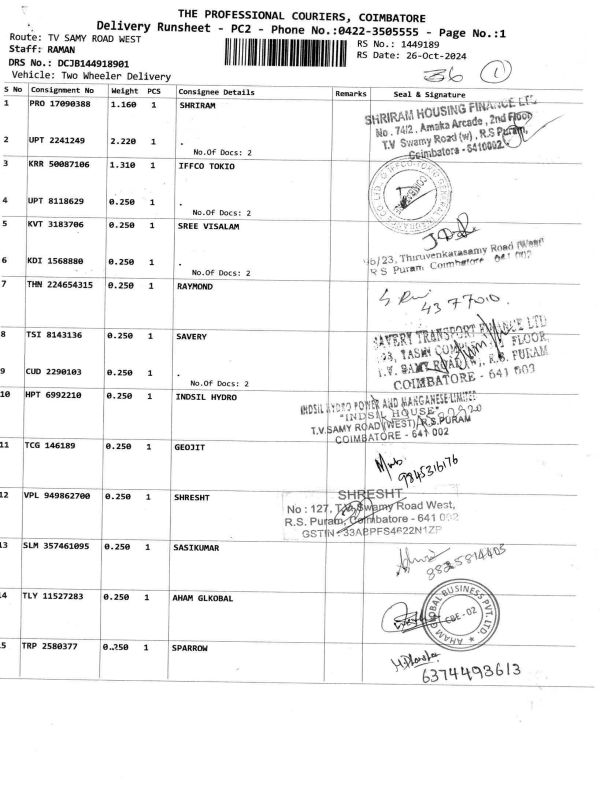 THE PROFESSIONAL COURIERS, COIMBATORE
Delivery Runsheet - PC2 - Phone No.:0422-3505555 - Page No.:1
Route: TV SAMY ROAD WEST
Staff: RAMAN
DRS No.: DCJB144918901
Vehicle: Two Wheeler Delivery
RS No.: 1449189
RS Date: 26-Oct-2024
36 1
S No Consignment No Weight PCS Consignee Details Remarks Seal & Signature
1 PRO 17090388 1.160 1 SHRIRAM
SHRIRAM HOUSING FINANCE LTD
No. 74/2, Amaka Arcade, 2nd Floor
T.V Swamy Road (w), R.S Puram,
Coimbatore - 641002
2 UPT 2241249 2.220 1 .
No.Of Docs: 2
3 KRR 50087106 1.310 1 IFFCO TOKIO
4 UPT 8118629 0.250 1 .
No.Of Docs: 2
5 KVT 3183706 0.250 1 SREE VISALAM
/23, Thiruvenkatasamy Road (West)
R S Puram, Coimbatore 641 002
6 KDI 1568880 0.250 1 .
No.Of Docs: 2
7 THN 224654315 0.250 1 RAYMOND
4377010
8 TSI 8143136 0.250 1 SAVERY
SAVERY TRANSPORT FINANCE LTD
FLOOR,
T.V. SAMY ROAD (W), R.S. PURAM
COIMBATORE - 641 002
9 CUD 2290103 0.250 1 .
No.Of Docs: 2
10 HPT 6992210 0.250 1 INDSIL HYDRO
INDSIL HYDRO POWER AND MANGANESE LIMITED
"INDSIL HOUSE"
T.V.SAMY ROAD (WEST), R.S.PURAM
COIMBATORE - 641 002
11 TCG 146189 0.250 1 GEOJIT
9845316176
12 VPL 949862700 0.250 1 SHRESHT
SHRESHT
No : 127, T.V.Swamy Road West,
R.S. Puram, Coimbatore - 641 002
GSTIN : 33ABPFS4622N1ZP
13 SLM 357461095 0.250 1 SASIKUMAR
8825814403
14 TLY 11527283 0.250 1 AHAM GLKOBAL
AHAM GLOBAL BUSINESS PVT. LTD.
CBE-02
15 TRP 2580377 0.250 1 SPARROW
6374493613